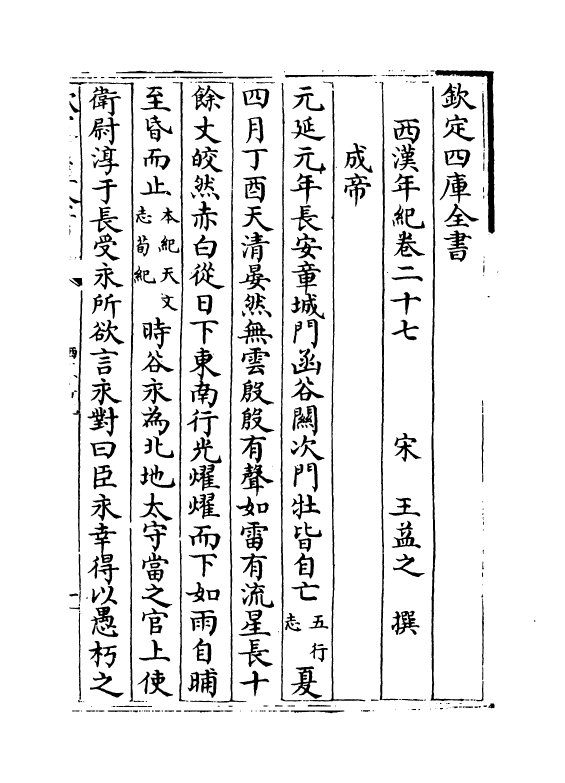 欽定四庫全書
西漢年紀卷二十七　宋　王益之　撰
成帝
元延元年長安章城門函谷關次門牡皆自亡五行志夏
四月丁酉天清晏然無雲殷殷有聲如雷有流星長十
餘丈皎然赤白從日下東南行光燿燿而下如雨自晡
至昏而止本紀天文志荀紀時谷永為北地太守當之官上使
衛尉淳于長受永所欲言永對曰臣永幸得以愚朽之